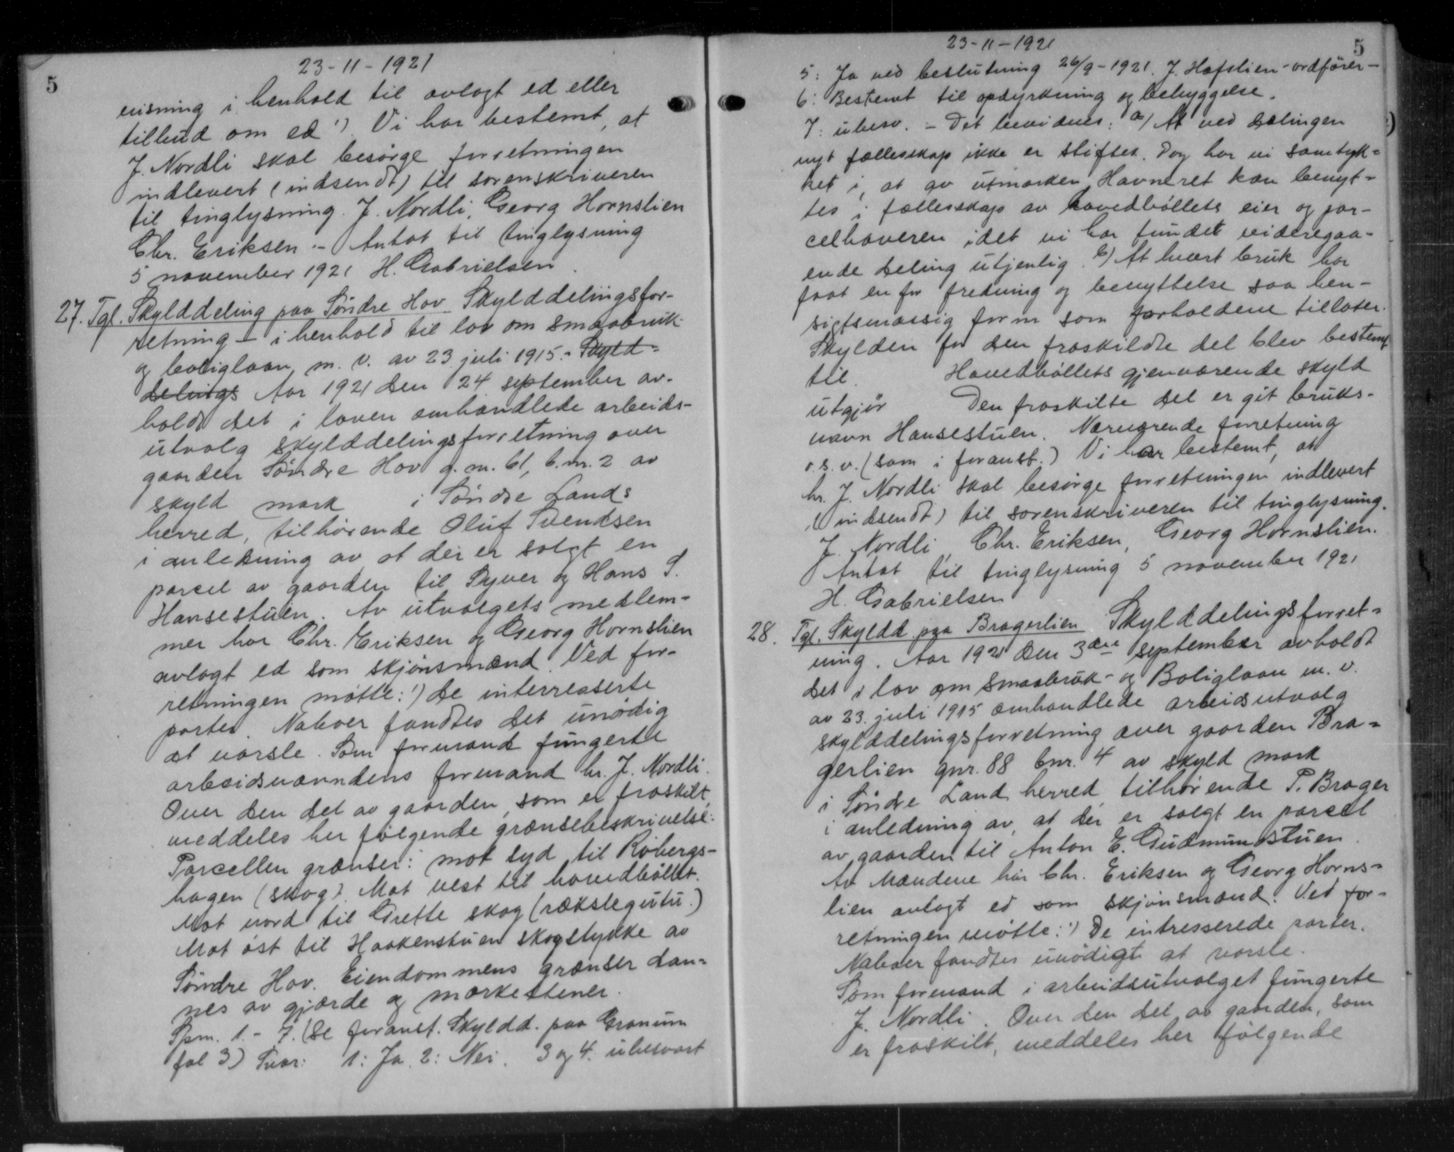 5
23-11-1921
visning i henhold til avlagt ed eller
tilbud om ed 1). Vi har bestemt, at
J. Nordli skal besørge forretningen
indlevert (indsendt) til sorenskriveren
til tinglysning. J. Nordli, Georg Hornslien
Chr. Eriksen - Antat til tinglysning
5 november 1921 H. Gabrielsen.
27. Tgl. Skylddeling paa Søndre Hov Skylddelingsfor-
retning - i henhold til lov om smaabruk
og boliglaan, m. v. av 23 juli 1915. - Skyld-
delings Aar 1921 den 24 september av-
holdt det i loven omhandlede arbeids-
utvalg skylddelingsforretning over
gaarden Søndre Hov g.m. 61, b.m. 2 av
skyld mark i Søndre Lands
herred, tilhørende Oluf Svendsen
i anledning av at der er solgt en
parcel av gaarden til Syver og Hans S.
Hansestuen. Av utvalgets medlem-
mer har Chr. Eriksen og Georg Hornslien
avlagt ed som skjønsmænd. Ved for-
retningen møtte: 1) De interreaserte
parter. Naboer fandtes det unødig
at varsle. Som formand fungerte
arbeidsnævndens formand hr. J. Nordli.
Over den del av gaarden, som er fraskilt,
meddeles her følgende grænsebeskrivelse:
Parcellen grænser: mot syd til Røbergs-
hagen (skog). Mot vest til hovedbøllet.
Mot nord til Grette skog (rækstegutu.)
Mot øst til Haakenstuen skogstykke av
Søndre Hov. Eiendommens grænser dan-
nes av gjærde og merkestener.
Spm. 1. - 7. (Se foranst. Skyldd. paa Granum
fol 3) Svar: 1: Ja. 2: Nei. 3 og 4. ubesvart
5
23-11-1921
5: Ja ved beslutning 26/9-1921. J. Hafslien - ordfører -
6: Bestemt til opdyrkning og bebyggelse.
7: ubesv. - Det bevidnes: a) At ved delingen
nyt fællesskap ikke er stiftet. Dog har vi samtyk-
ket i, at av utmarken Havneret kan benyt-
tes i fællesskap av hovedbøllets eier og par-
celhaveren, idet vi har fundet videregaa-
ende deling utjenlig. b) At hvert bruk har
faat en for fredning og benyttelse saa hen-
sigtsmæssig form som forholdene tillater.
Skylden for den fraskildte del blev bestemt
til. Hovedbøllets gjenværende skyld
utgjør Den fraskilte del er git bruks-
navn Hansestuen. Nærværende forretning
o.s.v. (som i foranst.) Vi har bestemt, at
hr. J. Nordli skal besørge forretningen indlevert
(indsendt) til sorenskriveren til tinglysning.
J. Nordli, Chr. Eriksen, Georg Hornslien.
Antat til tinglysning 5 november 1921
H. Gabrielsen
28. Tgl. Skyldd. paa Bragerlien Skylddelingsforret-
ning. Aar 1921 den 3dre september avholdt
det i lov om Smaabruk- og Boliglaan m. v.
av 23. juli 1915 omhandlede arbeidsutvalg
skylddelingsforretning over gaarden Bra-
gerlien gnr. 88 bnr. 4 av skyld mark
i Søndre Land herred tilhørende P. Brager
i anledning av, at der er solgt en parcel
av gaarden til Anton E. Gudmundstuen.
Av Mændene har Chr. Eriksen og Georg Horns-
lien avlagt ed som skjønsmænd. Ved for-
retningen møtte: 1) De intresserede parter.
Naboer fandtes unødigt at varsle.
Som formand i arbeidsutvalget fungerte
J. Nordli. Over den del av gaarden, som
er fraskilt, meddeles her følgende